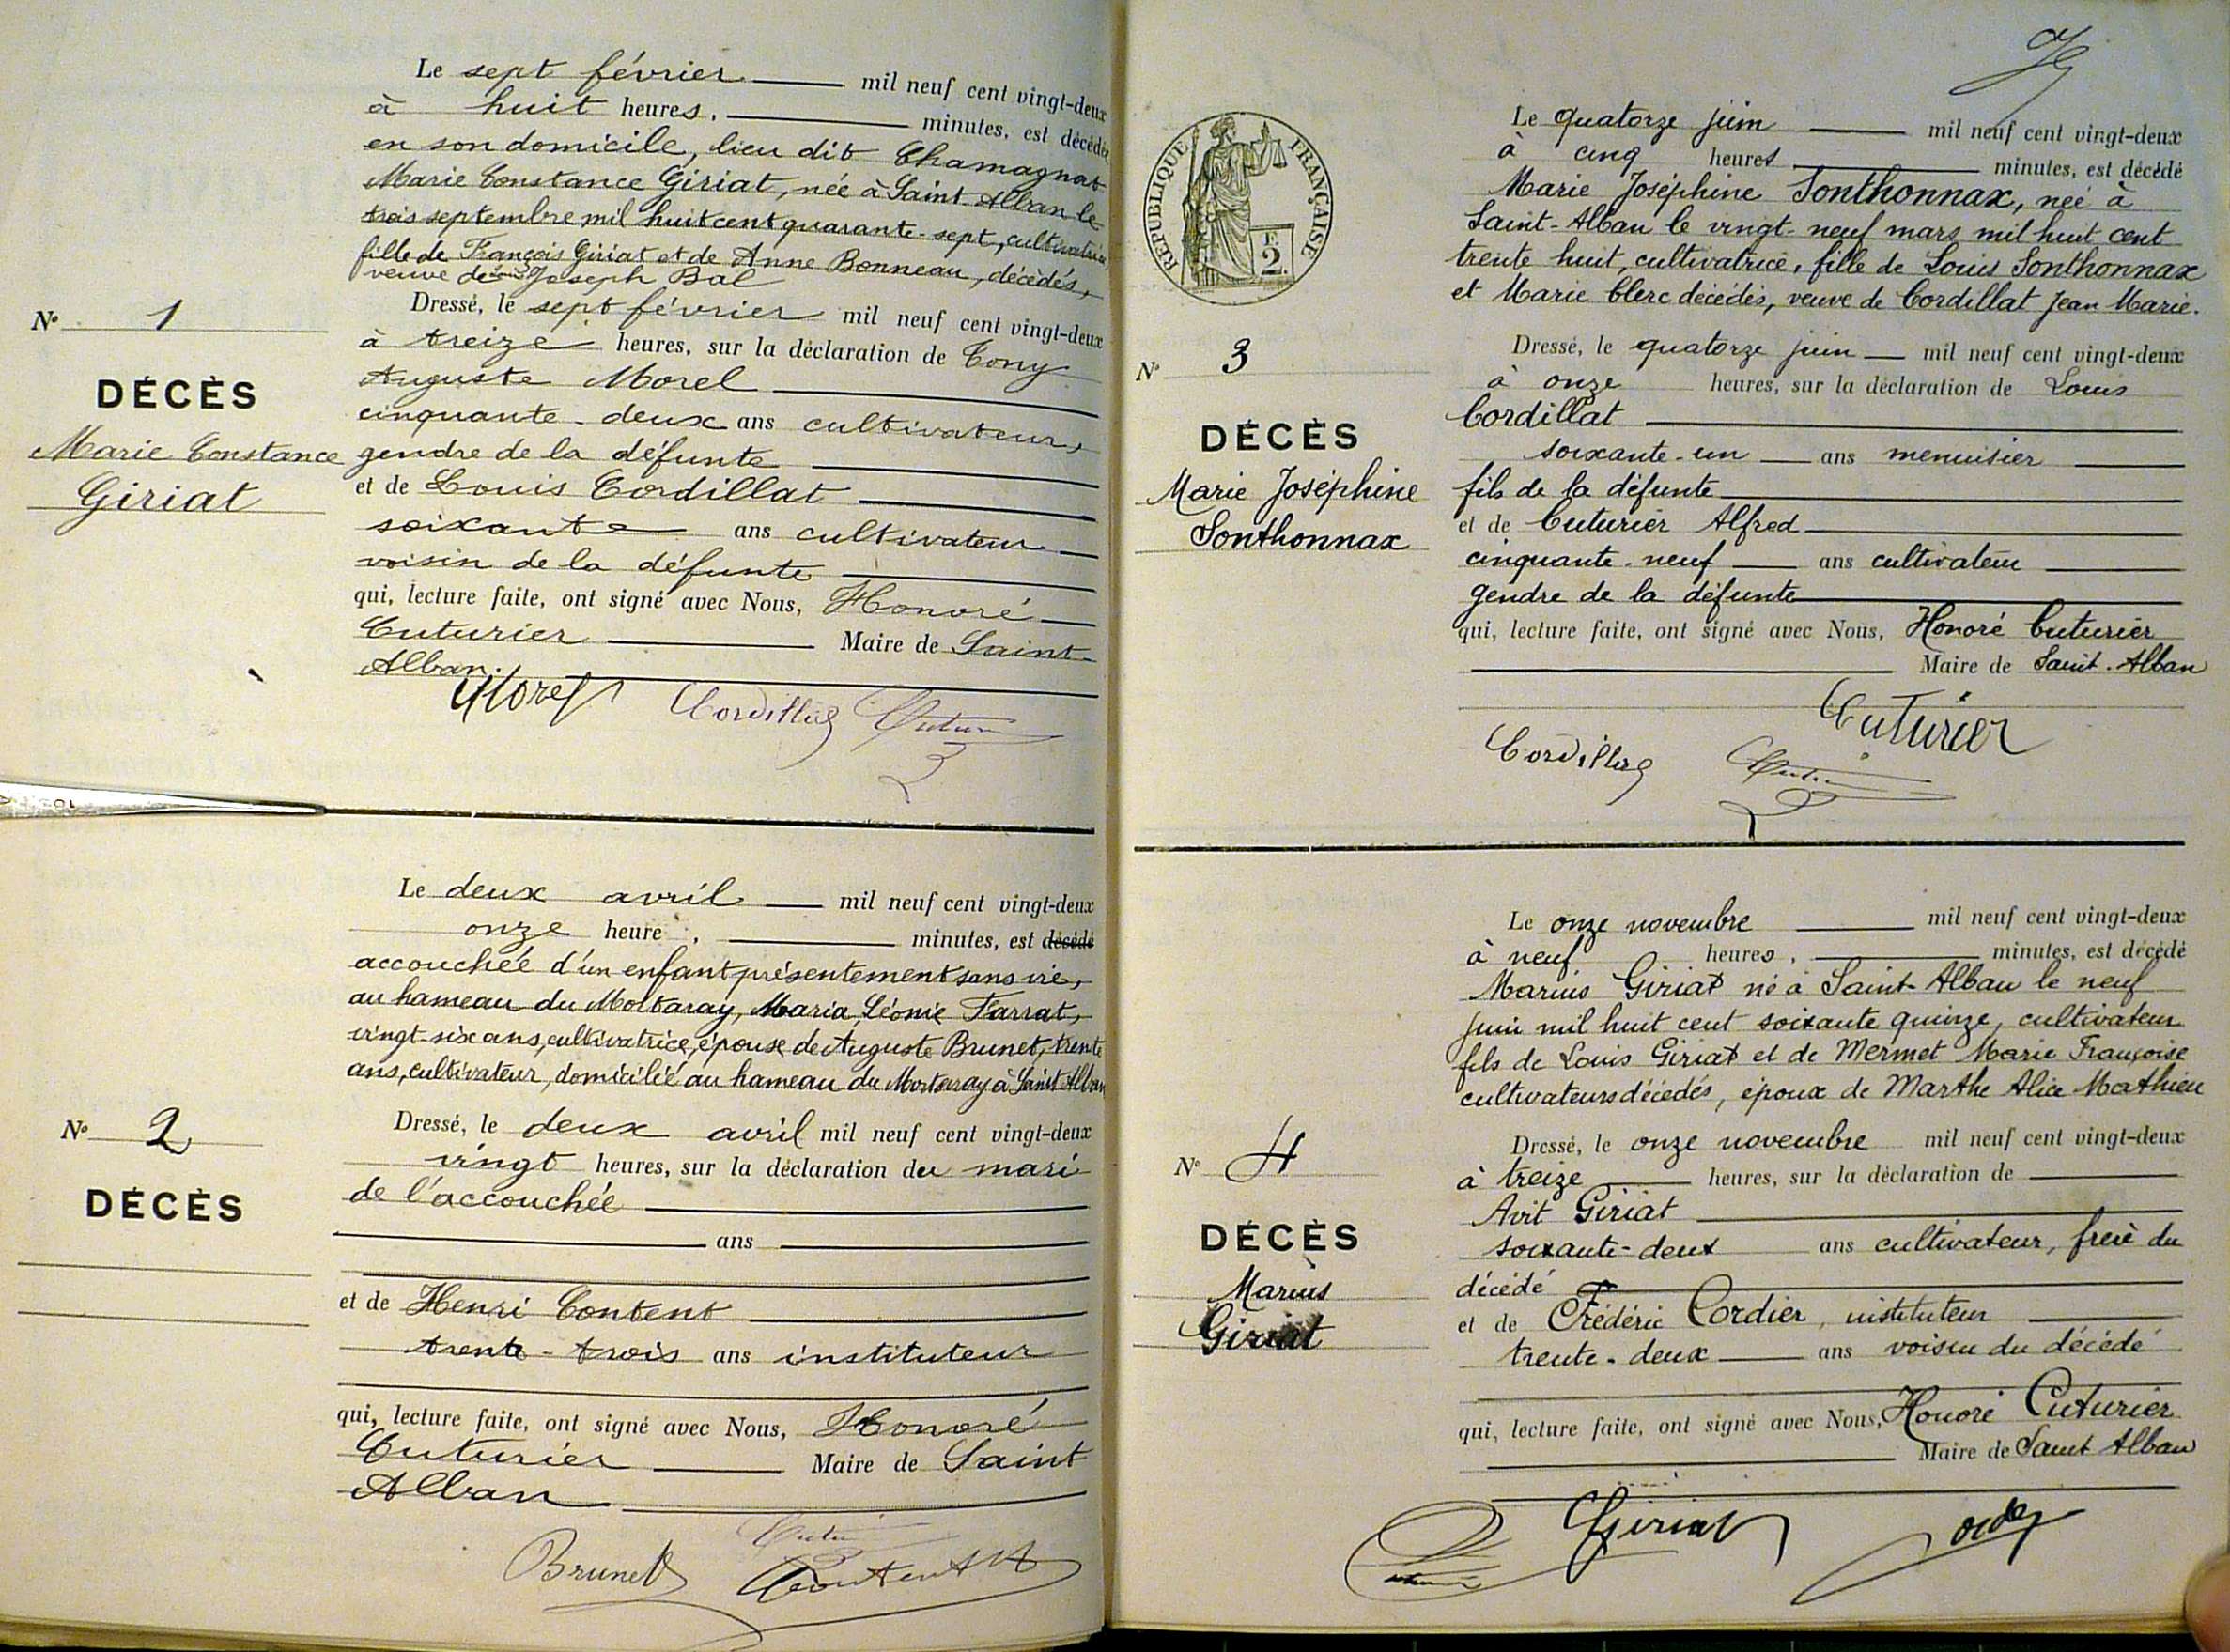 Le sept février mil neuf cent vingt-deux
à huit heures, minutes, est décédée
en son domicile, lieu dit Chamagnat
Marie Constance Giriat, née à Saint-Alban le
trois septembre mil huit cent quarante-sept, cultivatrice,
fille de François Giriat et de Anne Bonneau, décédés,
veuve de Joseph Bal
Dressé, le sept février mil neuf cent vingt-deux
à treize heures, sur la déclaration de Tony
Auguste Morel
cinquante-deux ans cultivateur,
gendre de la défunte
et de Louis Cordillat
soixante ans cultivateur
voisin de la défunte
qui, lecture faite, ont signé avec Nous, Honoré
Cuturier Maire de Saint-
Alban.
Morel Cordillat Cuturier
N° 1
DÉCÈS
Marie Constance
Giriat
Le deux avril mil neuf cent vingt-deux
onze heure, minutes, est décédé
accouchée d'un enfant présentement sans vie,
au hameau du Mortaray, Maria, Léonie Farrat,
vingt-six ans, cultivatrice, épouse de Auguste Brunet, trente
ans, cultivateur, domicilié au hameau du Mortaray à Saint Alban
Dressé, le deux avril mil neuf cent vingt-deux
vingt heures, sur la déclaration du mari
de l'accouchée
ans
et de Henri Content
trente-trois ans instituteur
qui, lecture faite, ont signé avec Nous, Honoré
Cuturier Maire de Saint
Alban
Brunet Cuturier Content H
N° 2
DÉCÈS
RÉPUBLIQUE FRANÇAISE
2 F.
Le quatorze juin mil neuf cent vingt-deux
à cinq heures minutes, est décédé
Marie Joséphine Sonthonnax, née à
Saint-Alban le vingt-neuf mars mil huit cent
trente huit, cultivatrice, fille de Louis Sonthonnax
et Marie Clerc décédés, veuve de Cordillat Jean Marie.
Dressé, le quatorze juin mil neuf cent vingt-deux
à onze heures, sur la déclaration de Louis
Cordillat
soixante-un ans menuisier
fils de la défunte
et de Cuturier Alfred
cinquante-neuf ans cultivateur
gendre de la défunte
qui, lecture faite, ont signé avec Nous, Honoré Cuturier
Maire de Saint-Alban
Cuturier
Cordillat Cuturier
N° 3
DÉCÈS
Marie Joséphine
Sonthonnax
Le onze novembre mil neuf cent vingt-deux
à neuf heures, minutes, est décédé
Marius Giriat né à Saint-Alban le neuf
juin mil huit cent soixante quinze, cultivateur
fils de Louis Giriat et de Mermet Marie Françoise
cultivateurs décédés, époux de Marthe Alice Mathieu
Dressé, le onze novembre mil neuf cent vingt-deux
à treize heures, sur la déclaration de
Avit Giriat
soixante-deux ans cultivateur, frère du
décédé
et de Frédéric Cordier, instituteur
trente-deux ans voisin du décédé
qui, lecture faite, ont signé avec Nous, Honoré Cuturier
Maire de Saint Alban
Giriat
N° 4
DÉCÈS
Marius
Giriat